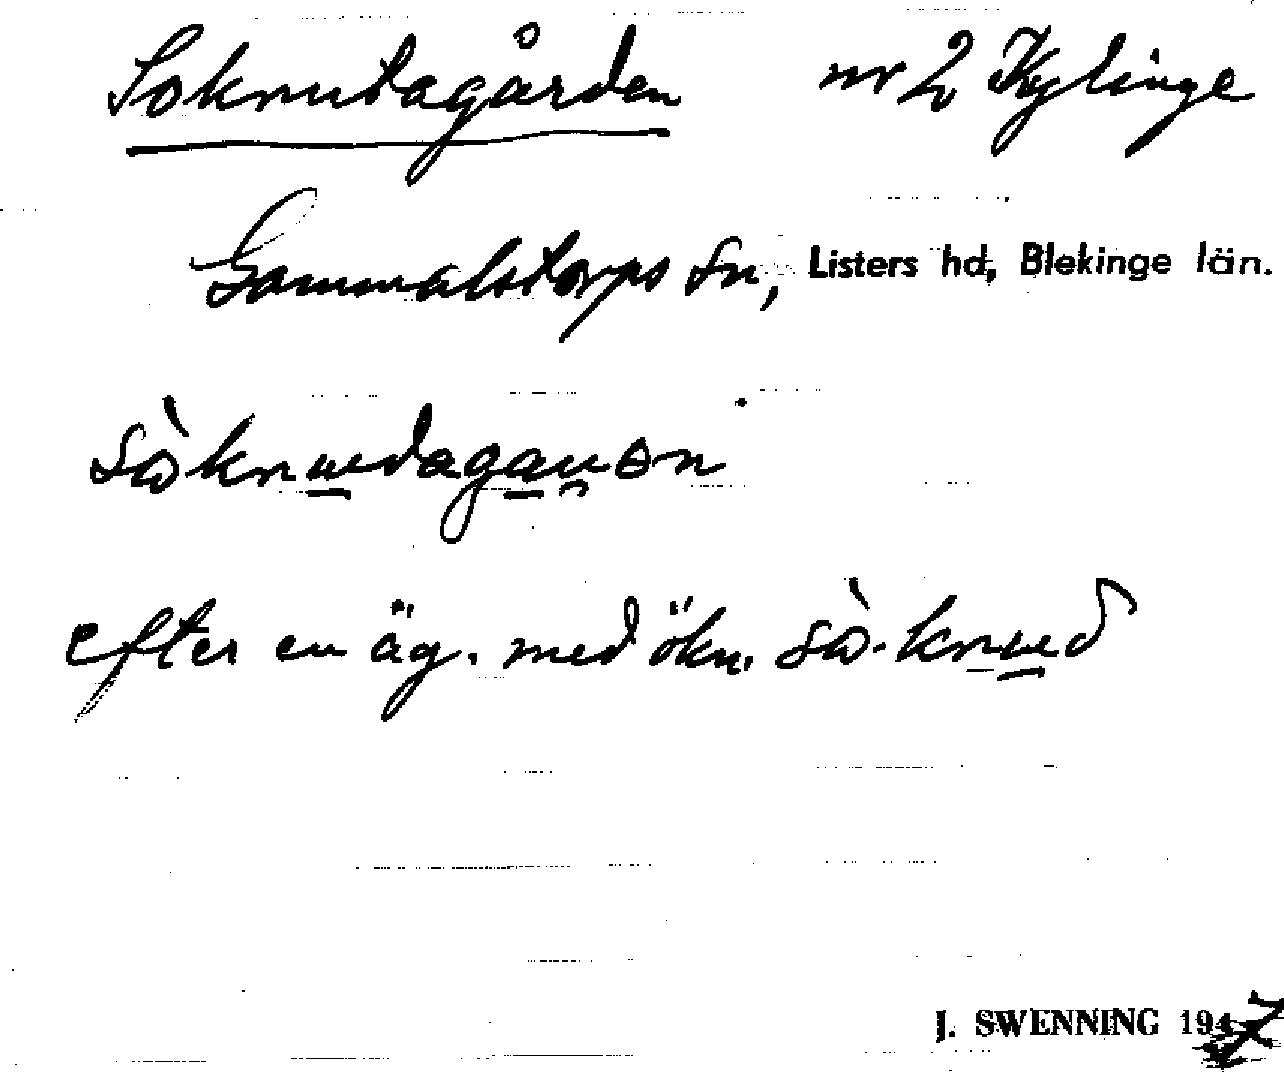 Soknutagården nr 2 Kylinge
Gammalstorps sn, Listers hd, Blekinge län.
sòknudagaɹən
efter en äg. med ökn. sò-knud
J. SWENNING 1947